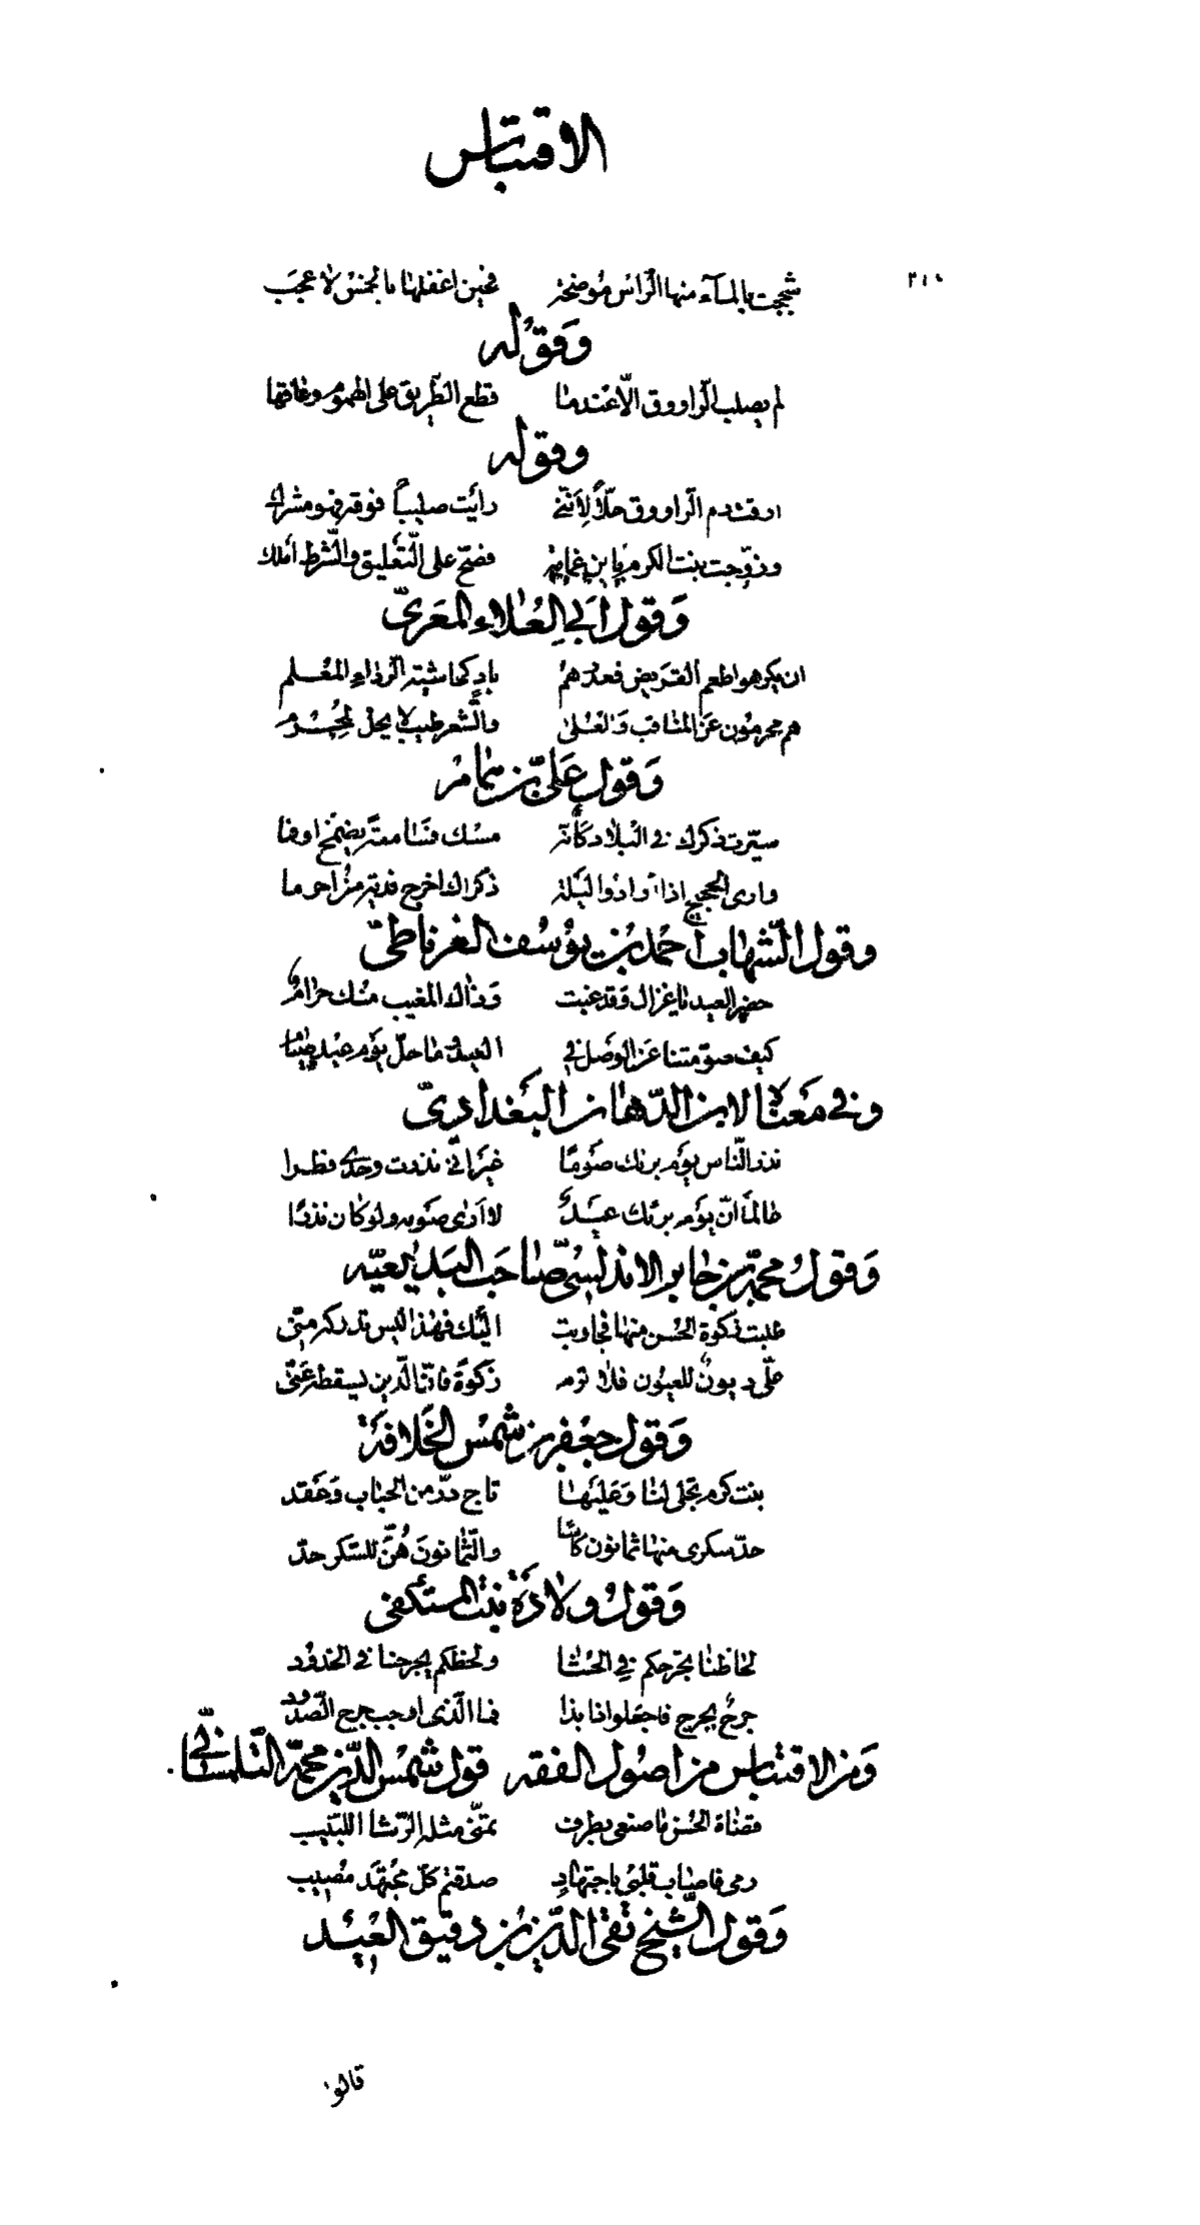 الاقتباس
٢١٠
شججت بالمآء منها الرّاس موضحة فحين اغفلها بالخمس لا عجب
وَقوْله
لم يصلب الرّاووق الّا عندما قطع الطّريق على الهموم وعاقها
وقوله
اراقت دم الرّاووق حلّاً لِأنّني رأيت صليباً فوقه فهو مشرك
وزوّجت بنت الكرم يا ابن غمامة فصحّ على التّعليق والشّرط املك
وَقول أبي العُلاء المعَريّ
ان يكرهوا طعم القريض فعذرهمْ بادٍ كحاشية الرّداءِ المعْلم
هم محرمُون عن المناقب وَالعُلى والشّعر طيب لا يحلّ لمحْرم
وَقول عَلي بن بسّام
سيّرت ذكرك في البلاد كأنّه مسك فسامعةً يضمّخ او فا
وارى الحجيج اذا ارادوا ليلة ذكراك اخرج فدية من احرما
وقول الشّهاب أحمد بن يوُسُف الغرناطيّ
حضر العيد يا غزال وَقد غبت وَذاك المغيب منك حرامُ
كيف صوّمتنا عن الوصْل في العيد وما حلّ يوم عيد صيام
وَفي مَعناه لابن الدّهان البَغداديّ
نذر النّاس يوم برئك صَومًا غيَر انّي نذرت وحدي فطرا
عالمًا انّ يوم برئك عيدٌ لا ارى صَومه ولو كان نذرًا
وَقولُ محمّد بن جابر الاندلسيّ صاحَب البَديعيّه
طلبت زكوة الحُسن منها فجاوبت اليْك فهذا ليس تدركه منّي
علَيّ ديونٌ للعيُون فلا ترم زكوةً فانّ الدّين يسقطها عَنّي
وَقول جعْفر بن شمْس الخَلافة
بنت كرم تجلى لنا وَعليَها تاج درّ من الحباب وَعَقد
حدّ سكرى منها ثمانون كأسًا والثّمانونَ هُنّ للسّكر حدّ
وَقولُ ولّادَة بنت المستكفي
لحاظنا تجرحكم في الحشا ولحظكم يجرحنا في الخدوُد
جرحٌ بجرح فاجعلوا ذا بذا فما الّذي اوجب جرح الصّدُود
وَمن الاقتباس من اصُول الفقه قول شمْس الدّين محمّد التّلمسانيّ
قضاة الحُسن ما صنعي بطرف تمنّى مثله الرّشا الربيب
رمى فاصاب قلبيْ باجتهادٍ صدقتم كلّ مجْتهَد مُصيب
وَقول الشّيخ تقي الدّين بن دقيق العْيد
قالوا